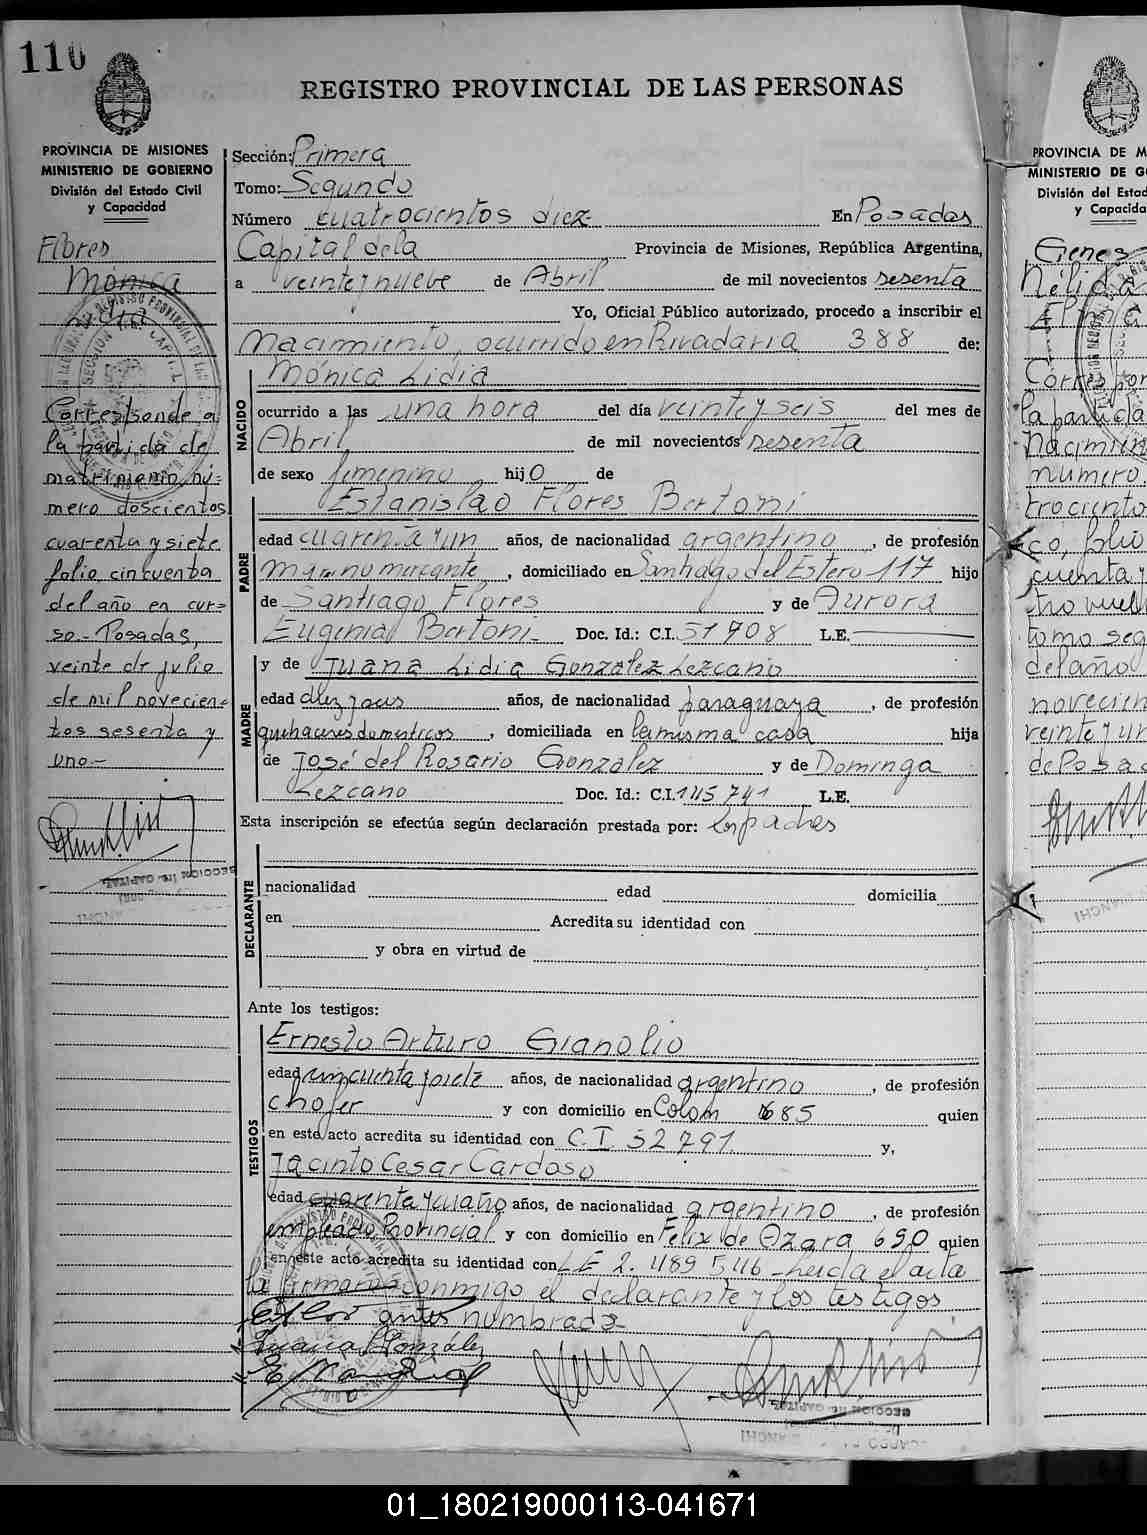 110
REGISTRO PROVINCIAL DE LAS PERSONAS
PROVINCIA DE MISIONES
MINISTERIO DE GOBIERNO
División del Estado Civil
y Capacidad
Flores
Mónica
Lidia
Corresponde a
la partida de
matrimonio nú-
mero doscientos
cuarenta y siete
folio cincuenta
del año en cur=
so - Posadas,
veinte de julio
de mil novecien-
tos sesenta y
uno.-
Sección: Primera
Tomo: Segundo
Número cuatrocientos diez En Posadas
Capital de la Provincia de Misiones, República Argentina,
a veinte y nueve de Abril de mil novecientos sesenta
Yo, Oficial Público autorizado, procedo a inscribir el
Nacimiento, ocurrido en Rivadavia 388 de:
NACIDO
Mónica Lidia
ocurrido a las una hora del día veinte y seis del mes de
Abril de mil novecientos sesenta
de sexo femenino hijo de
PADRE
Estanislao Flores Bertoni
edad cuarenta y un años, de nacionalidad argentino, de profesión
marino mercante, domiciliado en Santiago del Estero 117 hijo
de Santiago Flores y de Aurora
Eugenia Bertoni- Doc. Id.: C.I. 51708 L.E.
MADRE
y de Juana Lidia González Lezcano
edad años, de nacionalidad paraguaya, de profesión
quehaceres domesticos, domiciliada en la misma casa hija
de José del Rosario González y de Dominga
Lezcano Doc. Id.: C.I. 145741 L.E.
Esta inscripción se efectúa según declaración prestada por: los padres
DECLARANTE
nacionalidad edad domicilia
en Acredita su identidad con
y obra en virtud de
Ante los testigos:
TESTIGOS
Ernesto Arturo Gianolio
edad cincuenta y siete años, de nacionalidad argentino, de profesión
chofer y con domicilio en Colom 1685 quien
en este acto acredita su identidad con C.I. 52791. y,
Jacinto Cesar Cardoso
edad cuarenta y años, de nacionalidad argentino, de profesión
empleado Provincial y con domicilio en Felix de Azara 690 quien
en este acto acredita su identidad con L E 2.489546 - Leida el acta
la firman conmigo el declarante y los testigos
antes nombrado-
Juana González
PROVINCIA DE M
MINISTERIO DE G
División del Estad
y Capacida
Genes
Nélida
Corres por
la partida
Nacimien
numero
trociento
co, folio
cuenta y
tro vuel
tomo seg
del año
novecien
veinte y un
de Posa
01_180219000113-041671